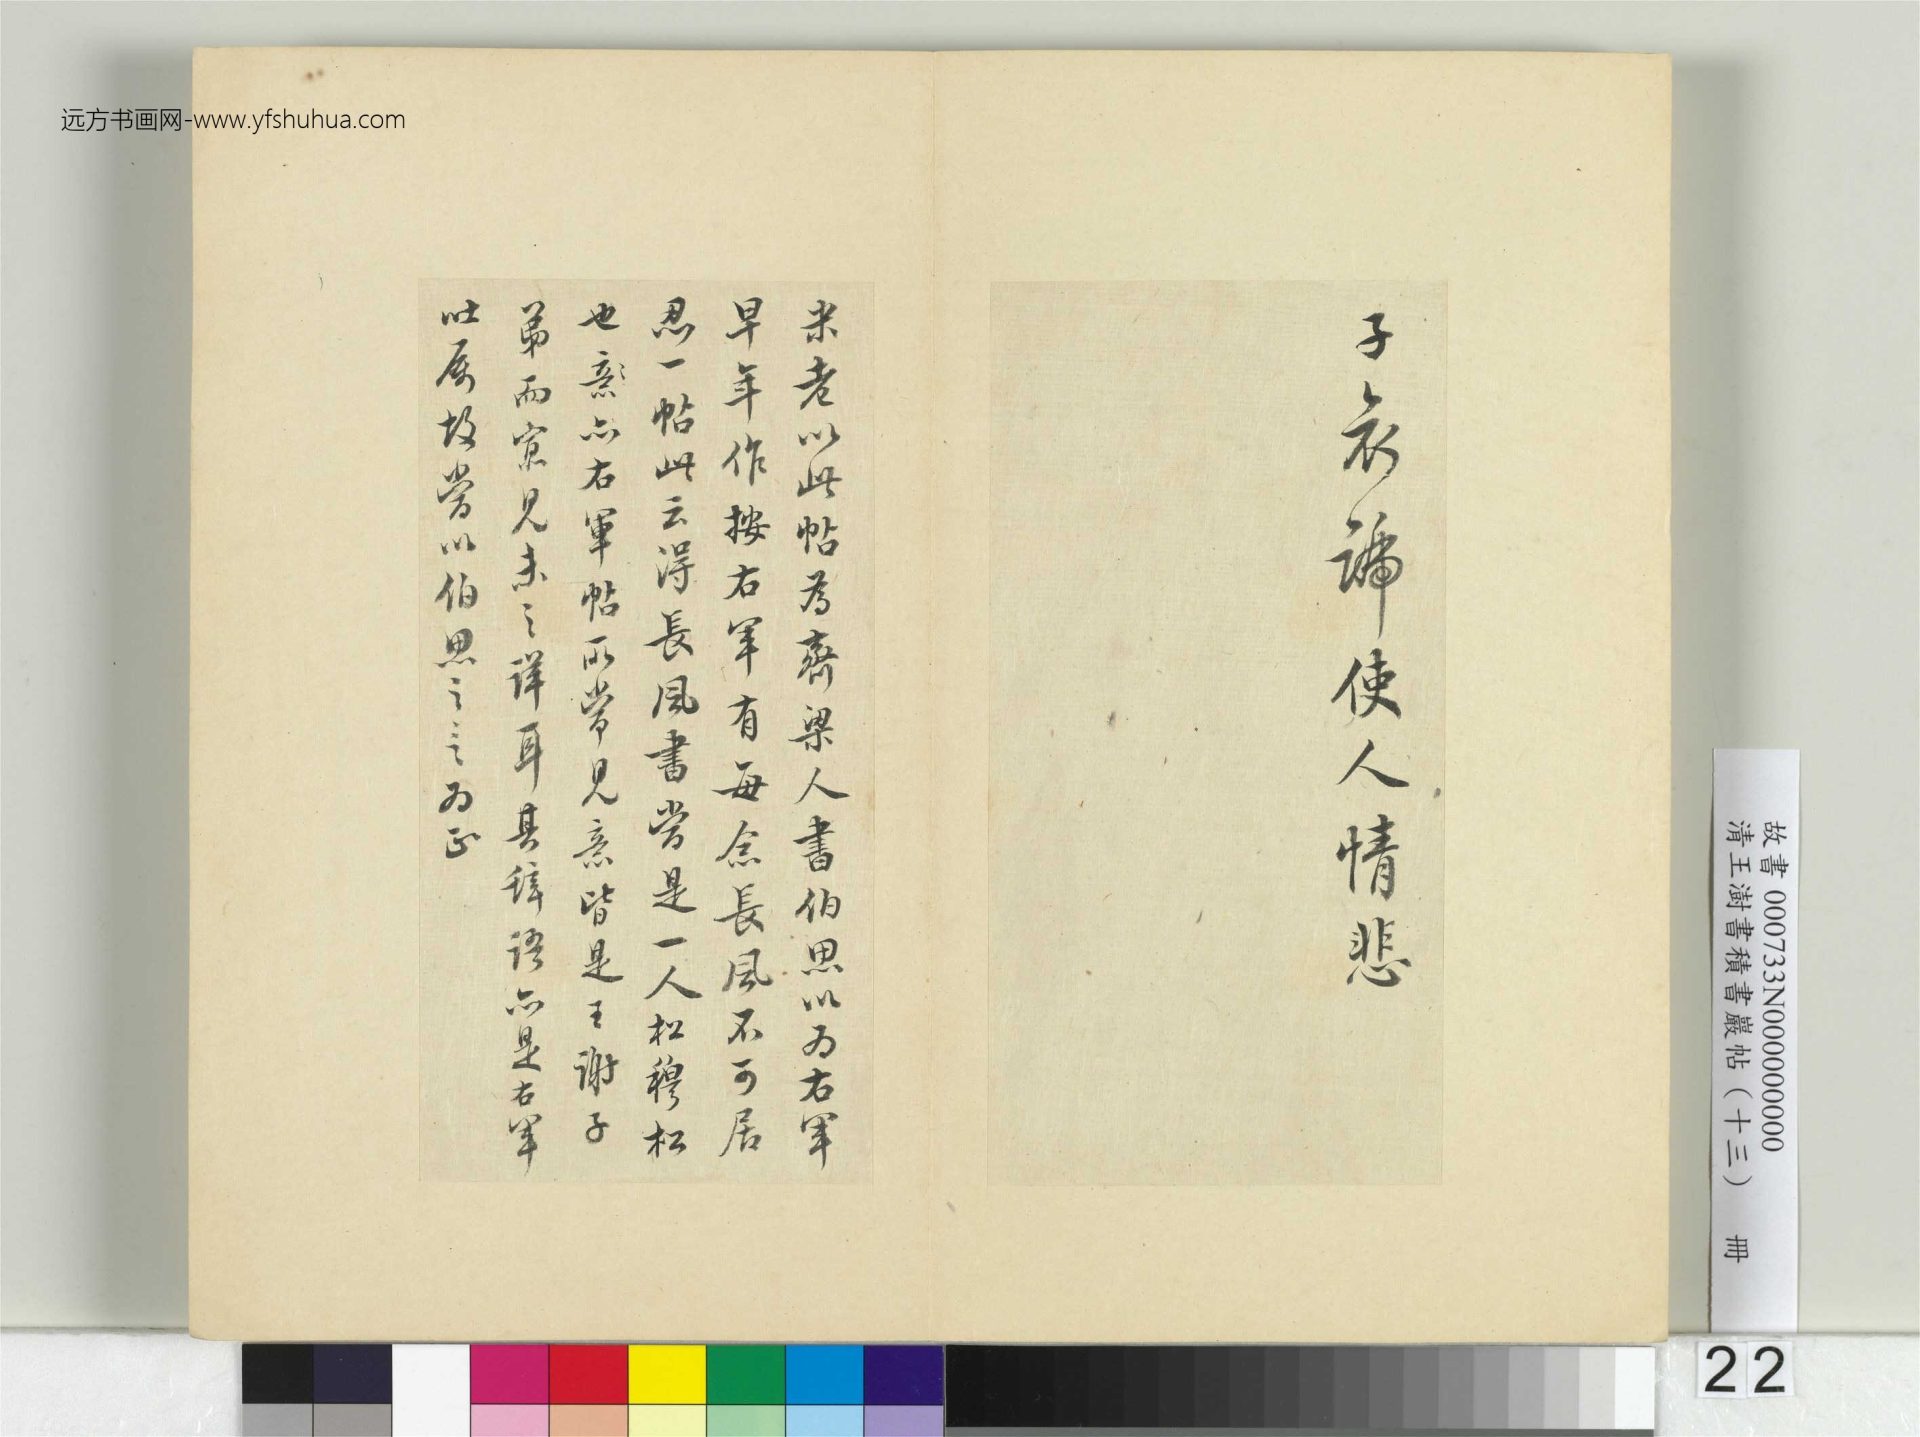 远方书画网-www.yfshuhua.com
子哀號使人情悲
米老以此帖為齊梁人書伯思以为右軍
早年作按右軍有每念長風不可居
忍一帖此云得長風書當是一人松穆松
也亦右軍帖所常見意皆是王謝子
弟而見未之詳耳其語亦是右軍
吐屬故當以伯思之言为正
故書 000733N000000000
清王澍書積書巖帖（十三） 冊
22